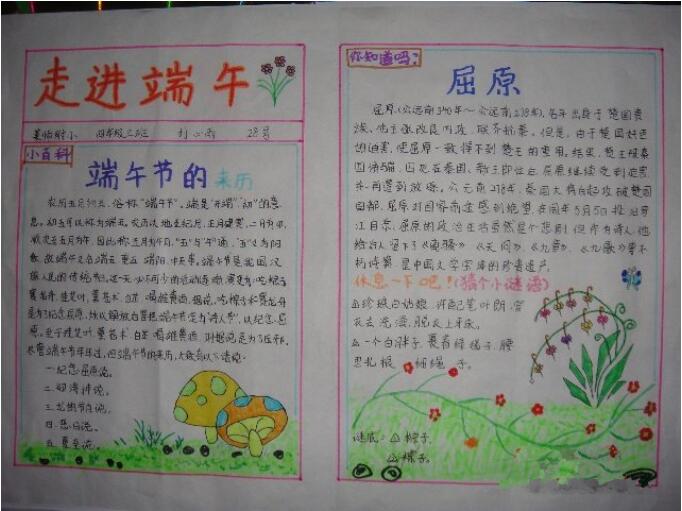 走进端午
莱怡附小 四年级三班 28号
小百科
端午节的来历
农历五月初五,俗称"端午节",端是"开端"、初"的意
思。初五可以称为端五。农历以地支纪月,正月建寅,二月为卯,
顺次至五月为午,因此称五月为午月,"五"与"午"通,"五"又为阳
数,故端午又名端五、重五、端阳、中天等。端午节是我国汉
族人民的传统节日。这一天必不可少的活动逐渐演变为:吃粽子,
赛龙舟,挂菖叶、薰艾术、白芷,喝雄黄酒。据说,吃粽子和赛龙舟,
是为了纪念屈原,所以解放后曾把端午节定为"诗人节",以纪念屈
原。至于挂菖叶、薰艾术、白芷、喝雄黄酒,则据说是为了压邪。
尽管端午节年年过,但端午节的来历,大致有以下诸说:
一.纪念屈原说。
二.迎涛神说。
三.龙的节日说。
四.恶日说。
五.夏至说。
你知道吗?
屈原
屈原(公元前340年~公元前278年),名平,出身于楚国贵
族。他主张改良内政,联齐抗秦。但是,由于楚国奸臣
的迫害,使屈原一致得不到楚王的重用。结果,楚王被秦
国诱骗,囚死在秦国。新王即位后,屈原继续受到迫害,
并再遭到放逐。公元前278年,秦国大将白起攻破楚国
国都,屈原对国家前途感到绝望,在同年5月5日投汨罗
江自杀。屈原的政治生活虽然是个悲剧,但作为诗人,他
给后人留下了《离骚》、《天问》、《九章》、《九歌》等不
朽诗篇,是中国文学宝库的珍贵遗产。
休息一下吧!(猜个小谜语)
△珍珠白姑娘,许配竹叶郎,穿
衣去洗澡,脱衣上牙床。
△一个白胖子,裹着绿褂子,腰
里扎根细绳子。
谜底:△粽子。
△粽子。